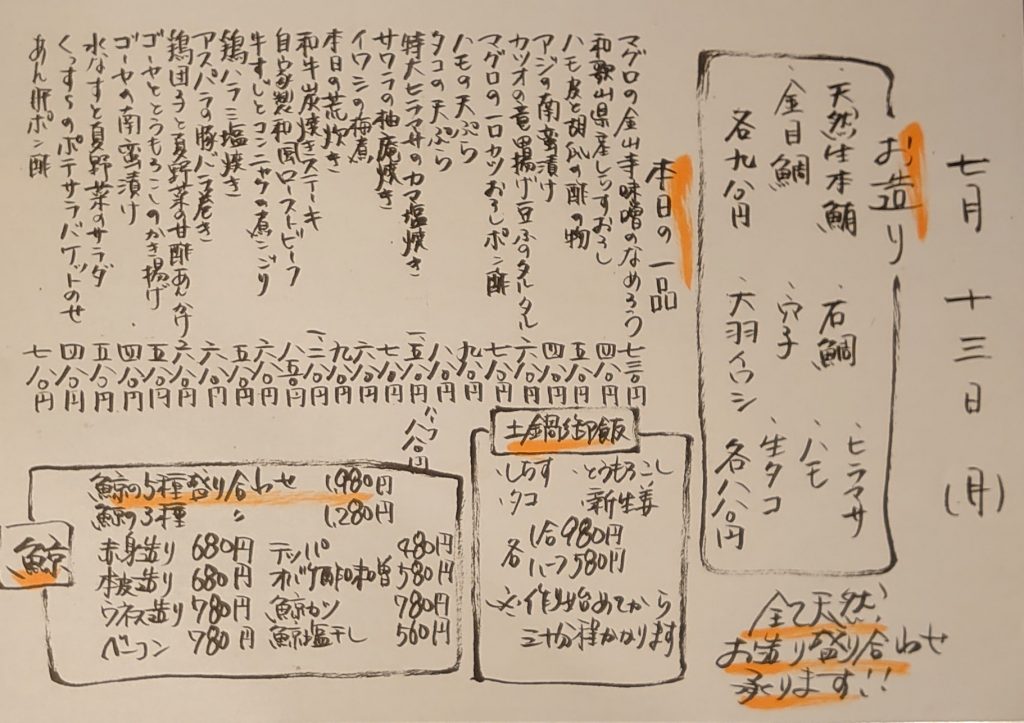 七月十三日(月)
お造り
・天然生本鮪
・石鯛
・ヒラマサ
・金目鯛
・穴子
・ハモ
各九八〇円
・大羽イワシ
・生タコ
各八八〇円
全て天然!
お造り盛り合わせ
承ります!!
本日の一品
マグロの金山寺味噌のなめろう 七三〇円
和歌山県産しらすおろし 四八〇円
ハモ皮と胡瓜の酢の物 五八〇円
アジの南蛮漬け 四八〇円
カツオの竜田揚げ豆ふのタルタル 六八〇円
マグロの一口カツおろしポン酢 七八〇円
ハモの天ぷら 九八〇円
タコの天ぷら 八八〇円
特大ヒラマサのカマ塩焼き 一、五八〇円 ハーフ八八〇円
サワラの柚庵焼き 七八〇円
イワシの梅煮 六八〇円
本日の荒炊き 九八〇円
和牛炭焼きステーキ 一、二八〇円
自家製和風ローストビーフ 八五〇円
牛すじとコンニャクの煮こごり 六八〇円
鶏ハラミ塩焼き 五八〇円
アスパラの豚バラ巻き 六八〇円
鶏団子と夏野菜の甘酢あんかけ 六八〇円
ゴーヤととうもろこしのかき揚げ 五八〇円
ゴーヤの南蛮漬け 四八〇円
水なすと夏野菜のサラダ 五八〇円
ポテサラバケットのせ 四八〇円
あん肝ポン酢 七八〇円
土鍋御飯
・しらす ・とうもろこし
・タコ ・新生姜
各 1合980円
ハーフ580円
※作り始めてから
三十分程かかります
鯨
鯨の5種盛り合わせ 1,980円
鯨の3種 〃 1,280円
赤身造り 680円 テッパ 480円
本皮造り 680円 オバケ酢味噌 580円
ウネス造り 780円 鯨カツ 780円
ベーコン 780円 鯨塩干し 560円